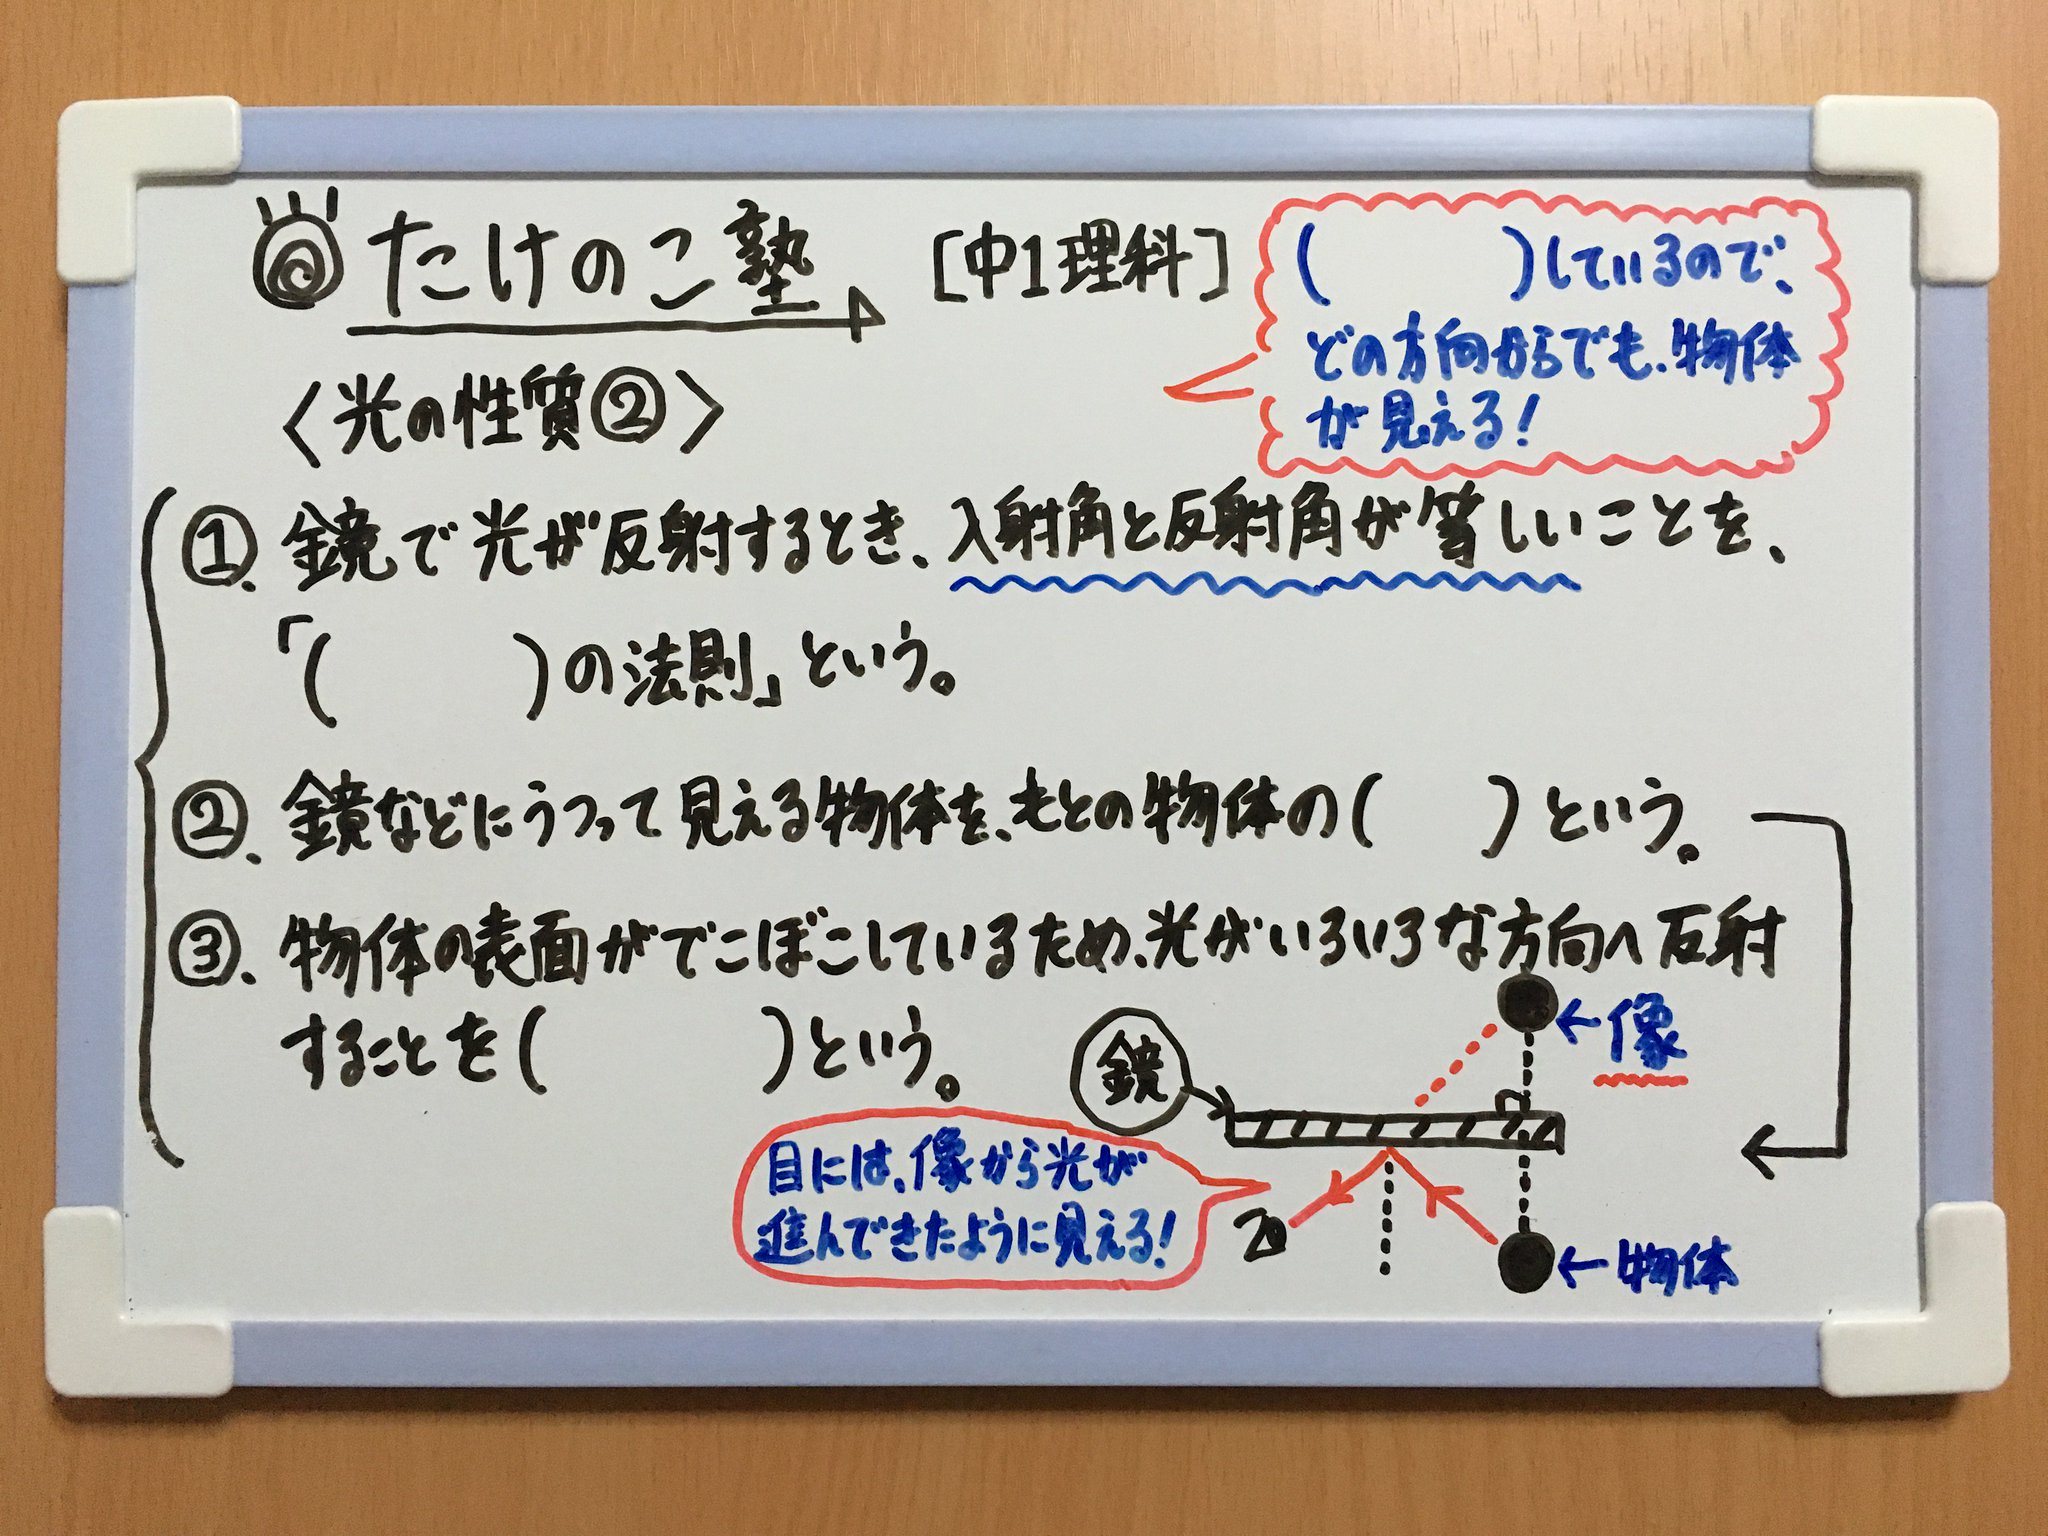 たけのこ塾 [中1理科]
( )しているので、
どの方向からでも、物体
が見える!
〈光の性質②〉
①. 鏡で光が反射するとき、入射角と反射角が等しいことを、
「( )の法則」という。
②. 鏡などにうつって見える物体を、もとの物体の( )という。
③. 物体の表面がでこぼこしているため、光がいろいろな方向へ反射
することを( )という。
←像
鏡
目には、像から光が
進んできたように見える!
←物体